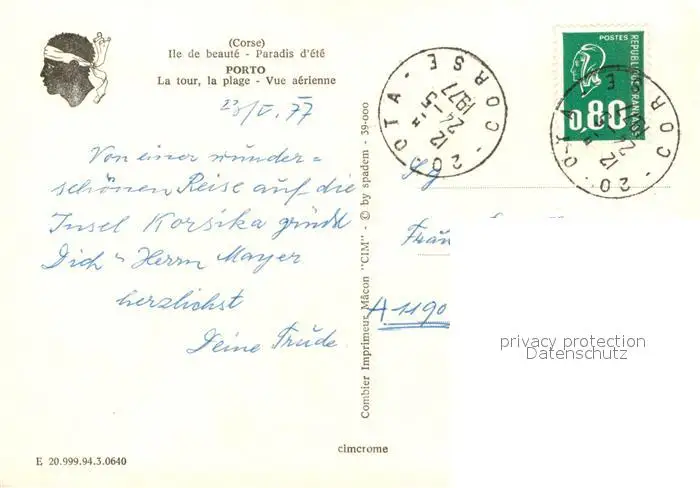 (Corse)
Ile de beauté - Paradis d'été
PORTO
La tour, la plage - Vue aérienne
23/V. 77
Von einer wunder=
schönen Reise auf die
Insel Korsika grüsst
Dich u Herrn Mayer
herzlichst
Deine Trude
E 20.999.94.3.0640
Combier Imprimeur Mâcon "CIM" - © by spadem - 39-000
cimcrome
20 OTA - CORSE
12 H
24-5
1977
POSTES
REPUBLIQUE FRANÇAISE
0,80
20 OTA CORSE
12 H
A-1190
privacy protection
Datenschutz